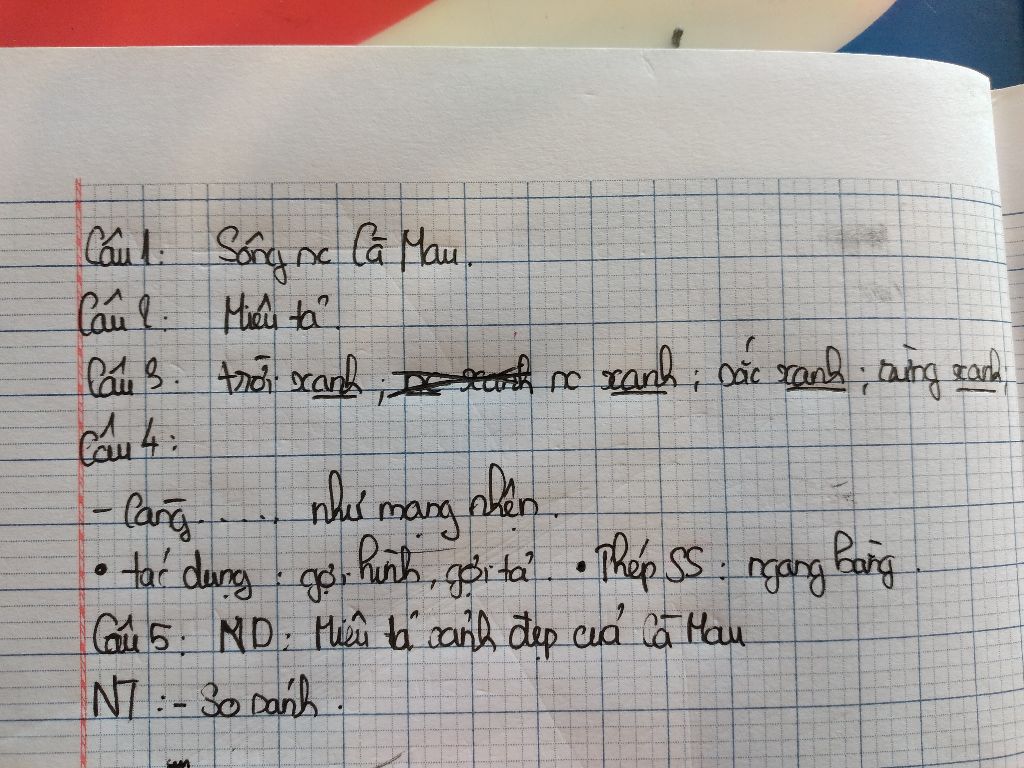 Câu 1: Sông nc Cà Mau.
Câu 2: Miêu tả.
Câu 3: trời xanh; nc xanh; sắc xanh; rừng xanh;
Câu 4:
- Càng ...... như mạng nhện.
• tác dụng: gợi hình, gợi tả. • Phép SS: ngang bằng.
Câu 5: ND: Miêu tả cảnh đẹp của Cà Mau
NT: - So sánh.